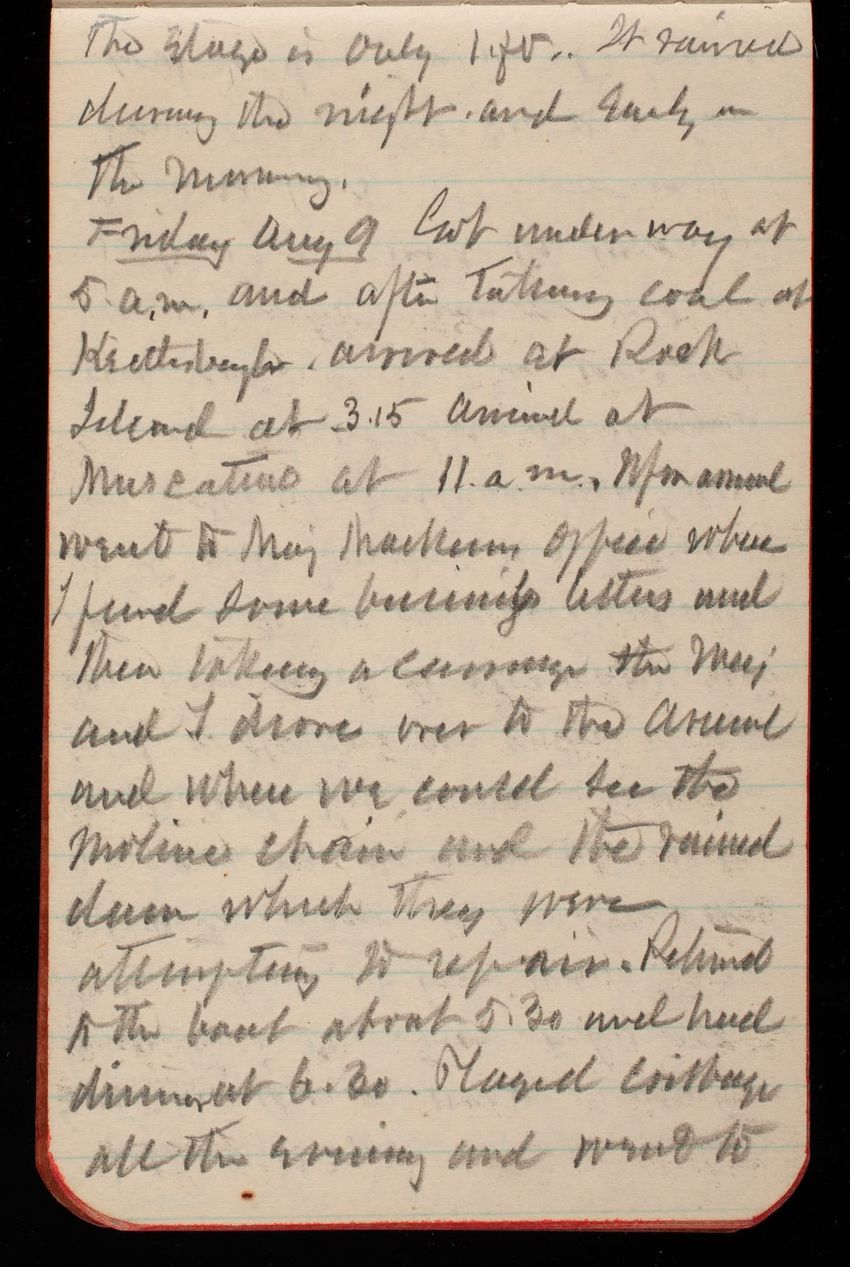 The stage is only 1 ft.. It rained
during the night. and Early in
the morning.
Friday Aug 9 Got under way at
5 a.m. and after taking coal at
Keithsburgh. arrived at Rock
Island at 3.15 arrived at
Muscatine at 11. a.m. Upon arrival
went to Maj Mackenzie office where
I found some business letters and
then taking a carriage the Maj
and I drove over to the Arsenal
and where we could see the
Moline chain and the ruined
dam which they were
attempting to repair. Returned
to the boat about 5.30 and had
dinner at 6.30. Played cribbage
all the evening and went to